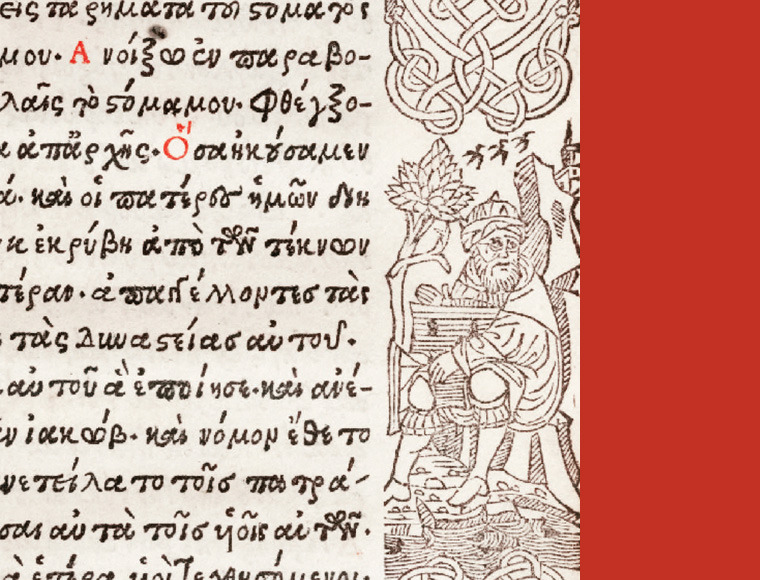 εἰς τὰ ρήματα τοῦ στόματός
μου. Ἀνοίξω ἐν παραβο-
λαῖς τὸ στόμα μου. Φθέγξο-
ἀπ' ἀρχῆς. Ὅσα ἠκούσαμεν
καὶ οἱ πατέρες ἡμῶν διη
κ ἐκρύβη ἀπὸ τῶν τέκνων
τέραν. ἀπαγγέλλοντες τὰς
τὰς δυναστείας αὐτοῦ.
αὐτοῦ ἃ ἐποίησε. καὶ ἀνέ-
ν ἰακώβ. καὶ νόμον ἔθετο
νετείλατο τοῖς πατρά-
σαι αὐτὰ τοῖς υἱοῖς αὐτῶν.
ἑτέρα υἱοὶ τεχθησόμενοι.